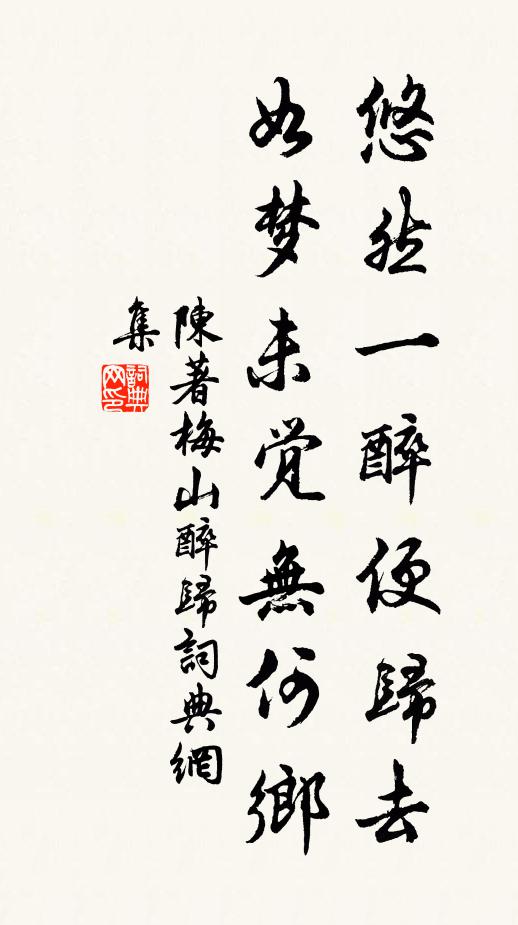 悠然一醉便歸去
如梦未觉無何鄉
陳著梅山醉歸詞典網
集
詞典网印